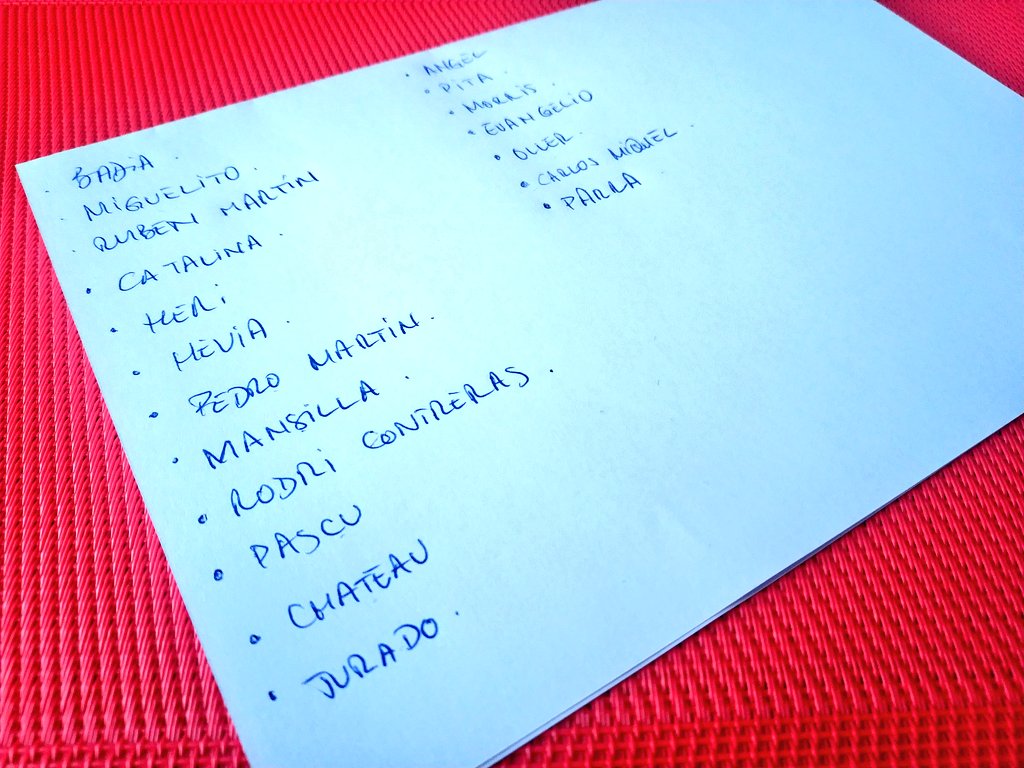 · BADIA.
· MIGUELITO.
· RUBEN MARTIN
· CATALINA.
· HERI
· HEVIA.
· PEDRO MARTIN.
· MANSILLA.
· RODRI CONTRERAS.
· PASCU
· CHATEAU
· JURADO.
· ANGEL
· PITA.
· MORRIS.
· EVANGELIO
· OLLER.
· CARLOS MIGUEL.
· PARRA.